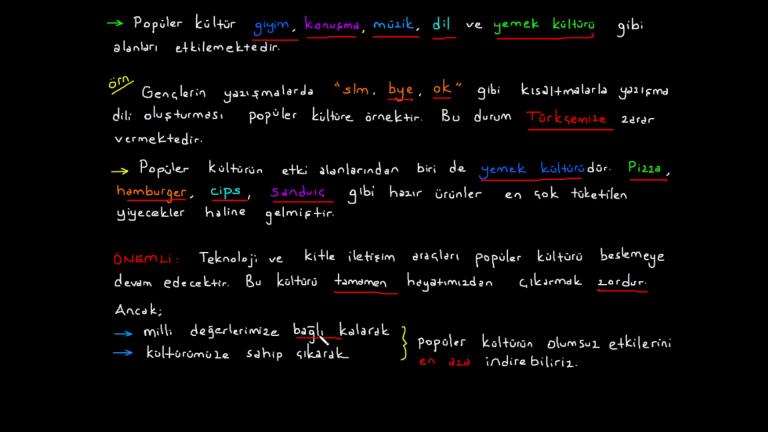 → Popüler kültür giyim, konuşma, müzik, dil ve yemek kültürü gibi
alanları etkilemektedir.
örn
Gençlerin yazışmalarda "slm, bye, ok" gibi kısaltmalarla yazışma
dili oluşturması popüler kültüre örnektir. Bu durum Türkçemize zarar
vermektedir.
→ Popüler kültürün etki alanlarından biri de yemek kültürüdür. Pizza,
hamburger, cips, sandviç gibi hazır ürünler en çok tüketilen
yiyecekler haline gelmiştir.
ÖNEMLİ: Teknoloji ve kitle iletişim araçları popüler kültürü beslemeye
devam edecektir. Bu kültürü tamamen hayatımızdan çıkarmak zordur.
Ancak;
→ milli değerlerimize bağlı kalarak
→ kültürümüze sahip çıkarak
popüler kültürün olumsuz etkilerini
en aza indirebiliriz.